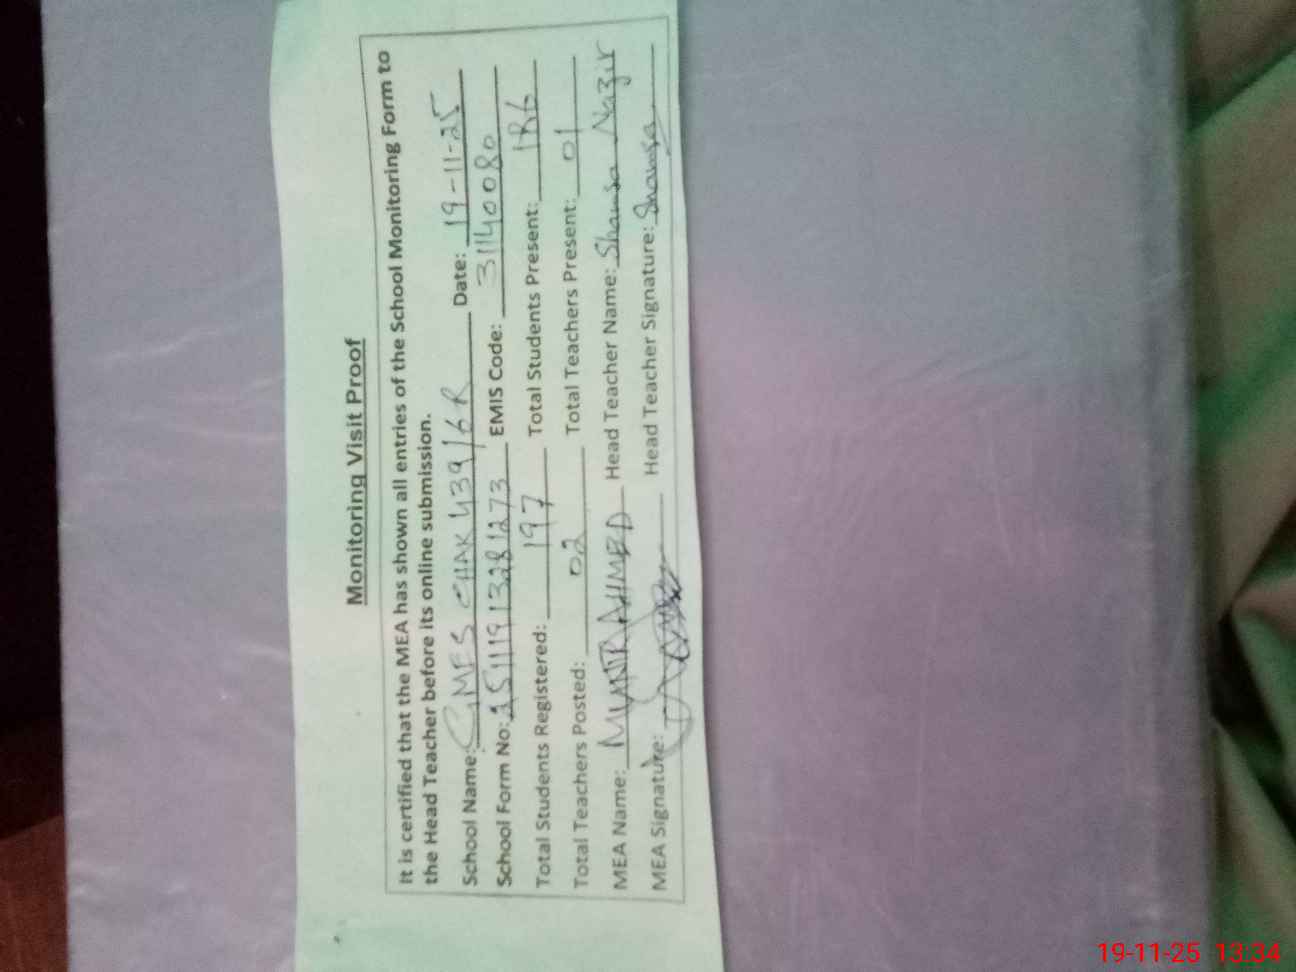 Monitoring Visit Proof
It is certified that the MEA has shown all entries of the School Monitoring Form to
the Head Teacher before its online submission.
School Name: GMES CHAK 439/6R Date: 19-11-25
School Form No: 25111913281273 EMIS Code: 31140080
Total Students Registered: 197 Total Students Present: 186
Total Teachers Posted: 02 Total Teachers Present: 01
MEA Name: MUNIR AHMED Head Teacher Name: Shamsa Nazir
MEA Signature: Head Teacher Signature: Shamsa
19-11-25 13:34